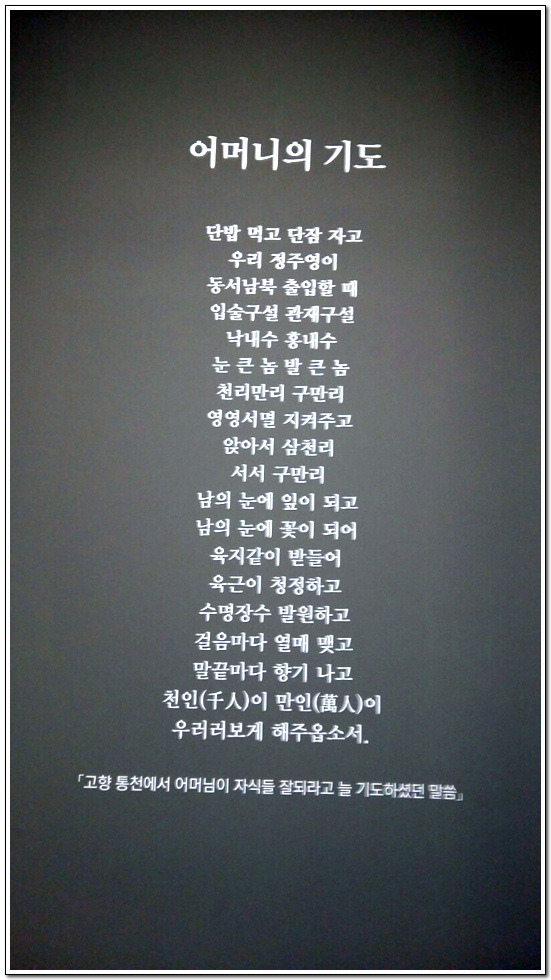 어머니의 기도
단밥 먹고 단잠 자고
우리 정주영이
동서남북 출입할 때
입술구설 관재구설
낙내수 홍내수
눈 큰 놈 발 큰 놈
천리만리 구만리
영영서멸 지켜주고
앉아서 삼천리
서서 구만리
남의 눈에 잎이 되고
남의 눈에 꽃이 되어
육지같이 받들어
육근이 청정하고
수명장수 발원하고
걸음마다 열매 맺고
말끝마다 향기 나고
천인(千人)이 만인(萬人)이
우러러보게 해주옵소서.
「고향 통천에서 어머님이 자식들 잘되라고 늘 기도하셨던 말씀」